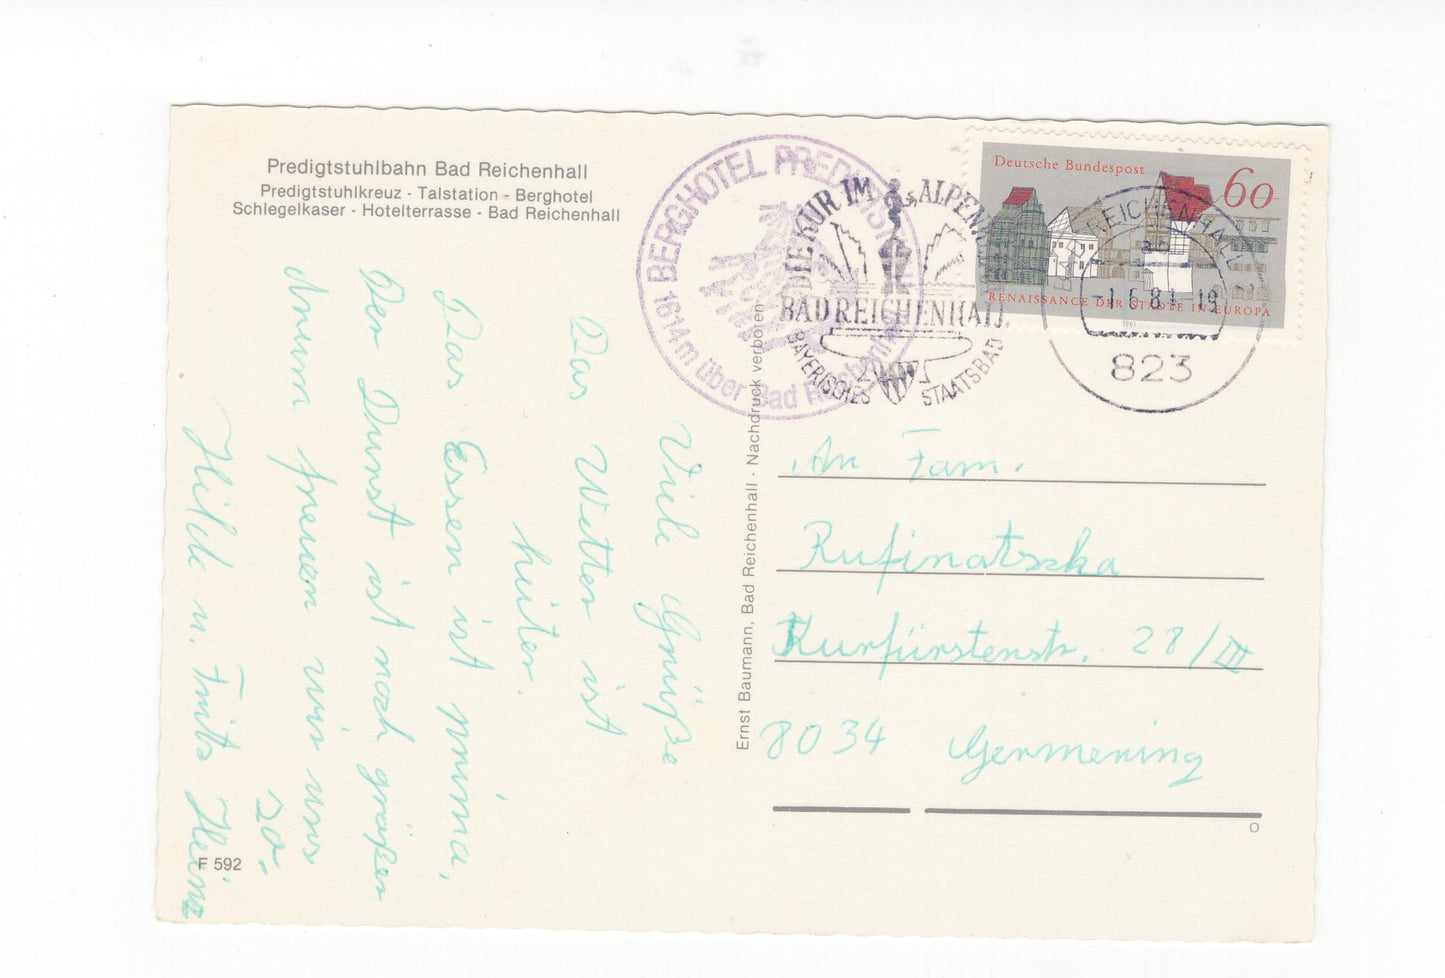 Predigtstuhlbahn Bad Reichenhall
Predigtstuhlkreuz - Talstation - Berghotel
Schlegelkaser - Hotelterrasse - Bad Reichenhall
BERGHOTEL
1614m über Bad
DIE KUR IM ALPEN
BAD REICHENHALL
BAYERISCHES STAATSBAD
Deutsche Bundespost
60
RENAISSANCE DER STÄDTE IN EUROPA
1981
REICHENHALL
-1.6.81-19
823
Viele Grüße
Das Wetter ist
heiter.
Das Essen ist prima,
Der Dunst ist noch größer
drum freuen wir uns
so.
Hilde u. Fritz Heinz
Ernst Baumann, Bad Reichenhall - Nachdruck verboten
An Fam.
Rufinatscha
Kurfürstenstr. 28/III
8034 Germering
F 592